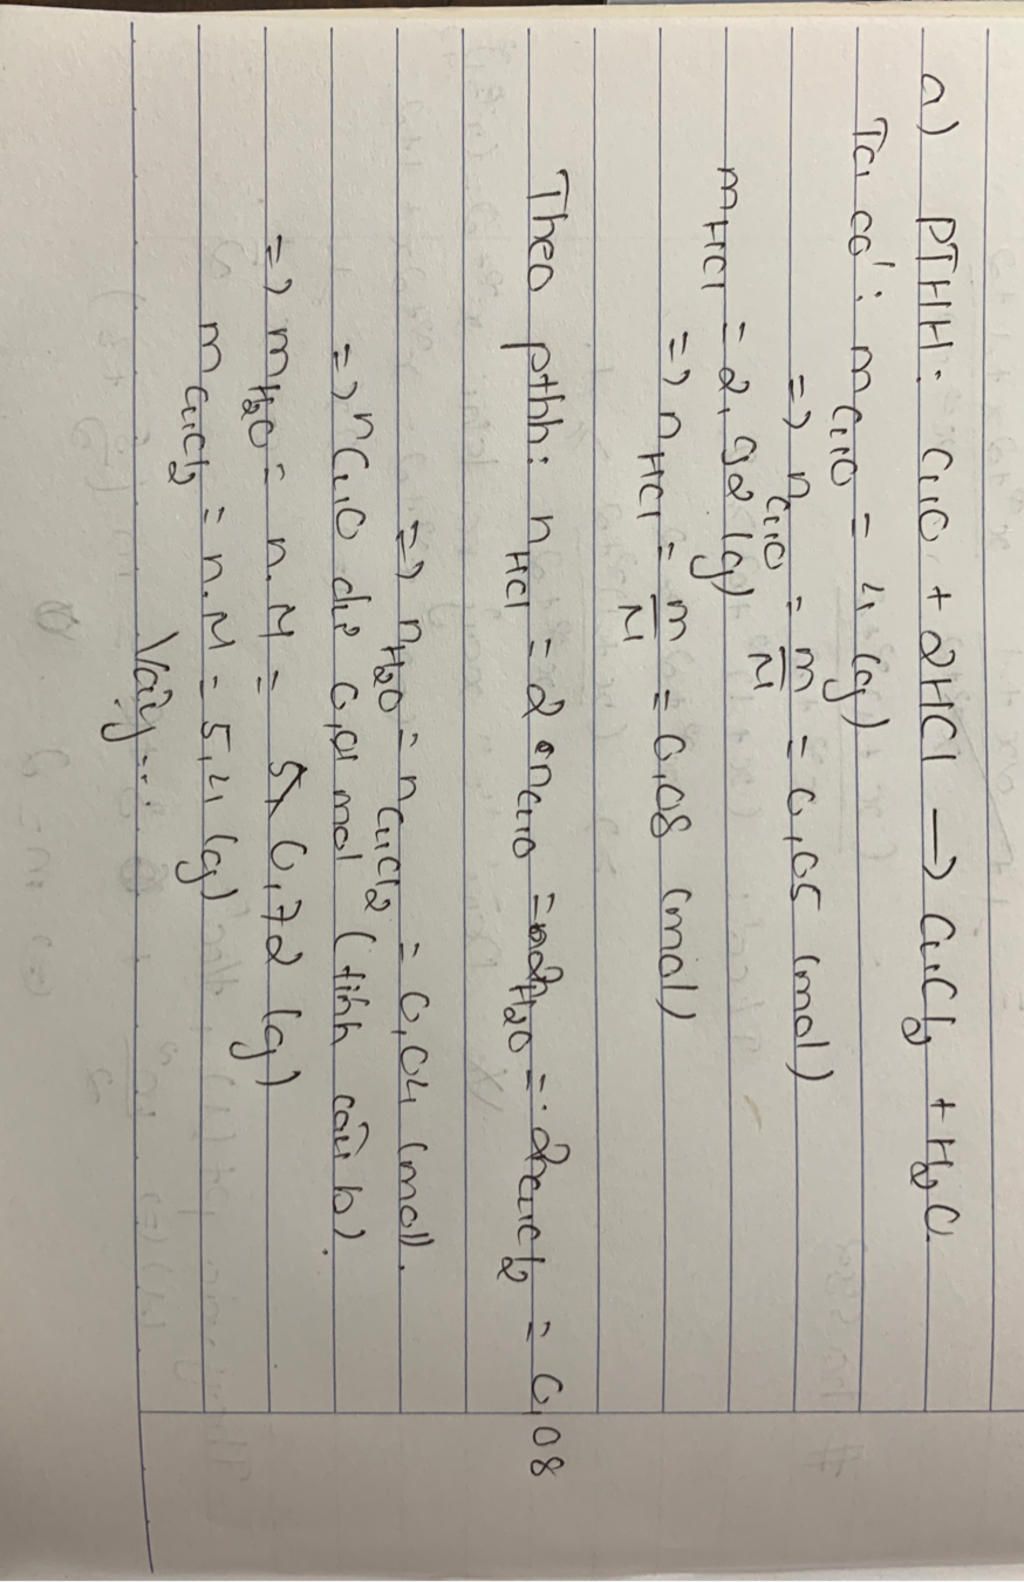 a) PTHH: CuO + 2HCl → CuCl2 + H2O
Ta có: mCuO = 4 (g)
=> nCuO = m/M = 0,05 (mol)
mHCl = 2,92 (g)
=> nHCl = m/M = 0,08 (mol)
Theo pthh: nHCl = 2nCuO = 2nH2O = 2nCuCl2 = 0,08
=> nH2O = nCuCl2 = 0,04 (mol).
=> nCuO dư 0,01 mol (tính câu b).
=> mH2O = n.M = 0,72 (g)
mCuCl2 = n.M = 5,4 (g)
Vậy...